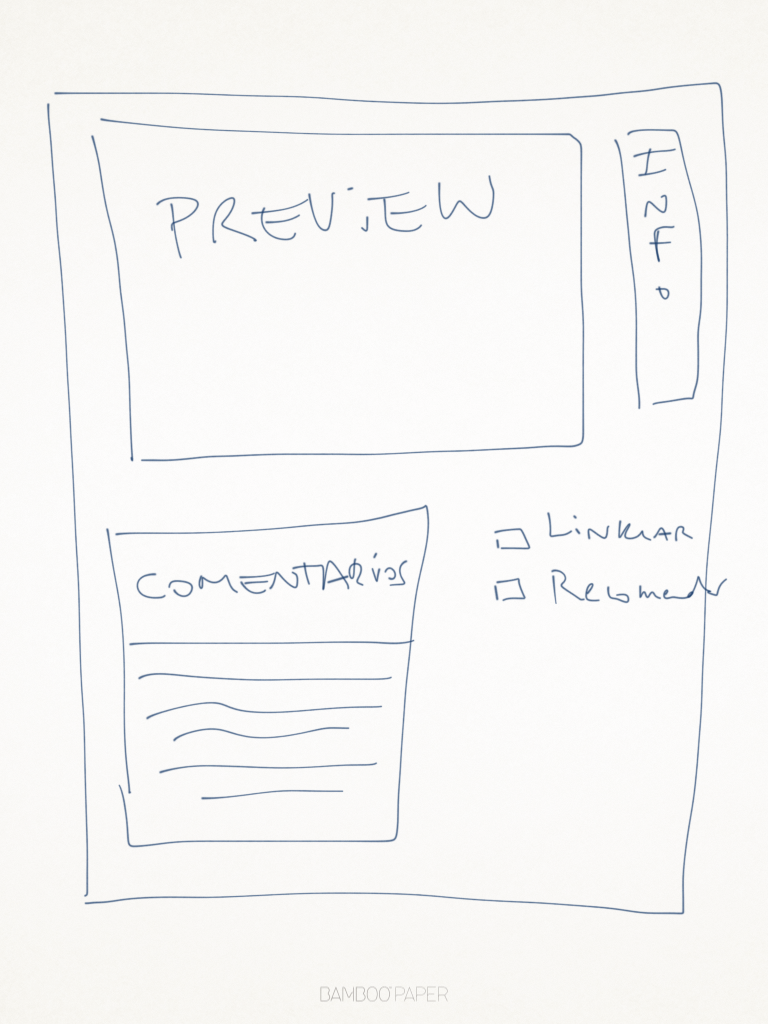 PREViEW
INFO
COMENTARiOS
LiNKEAR
Recomendar
BAMBOO PAPER